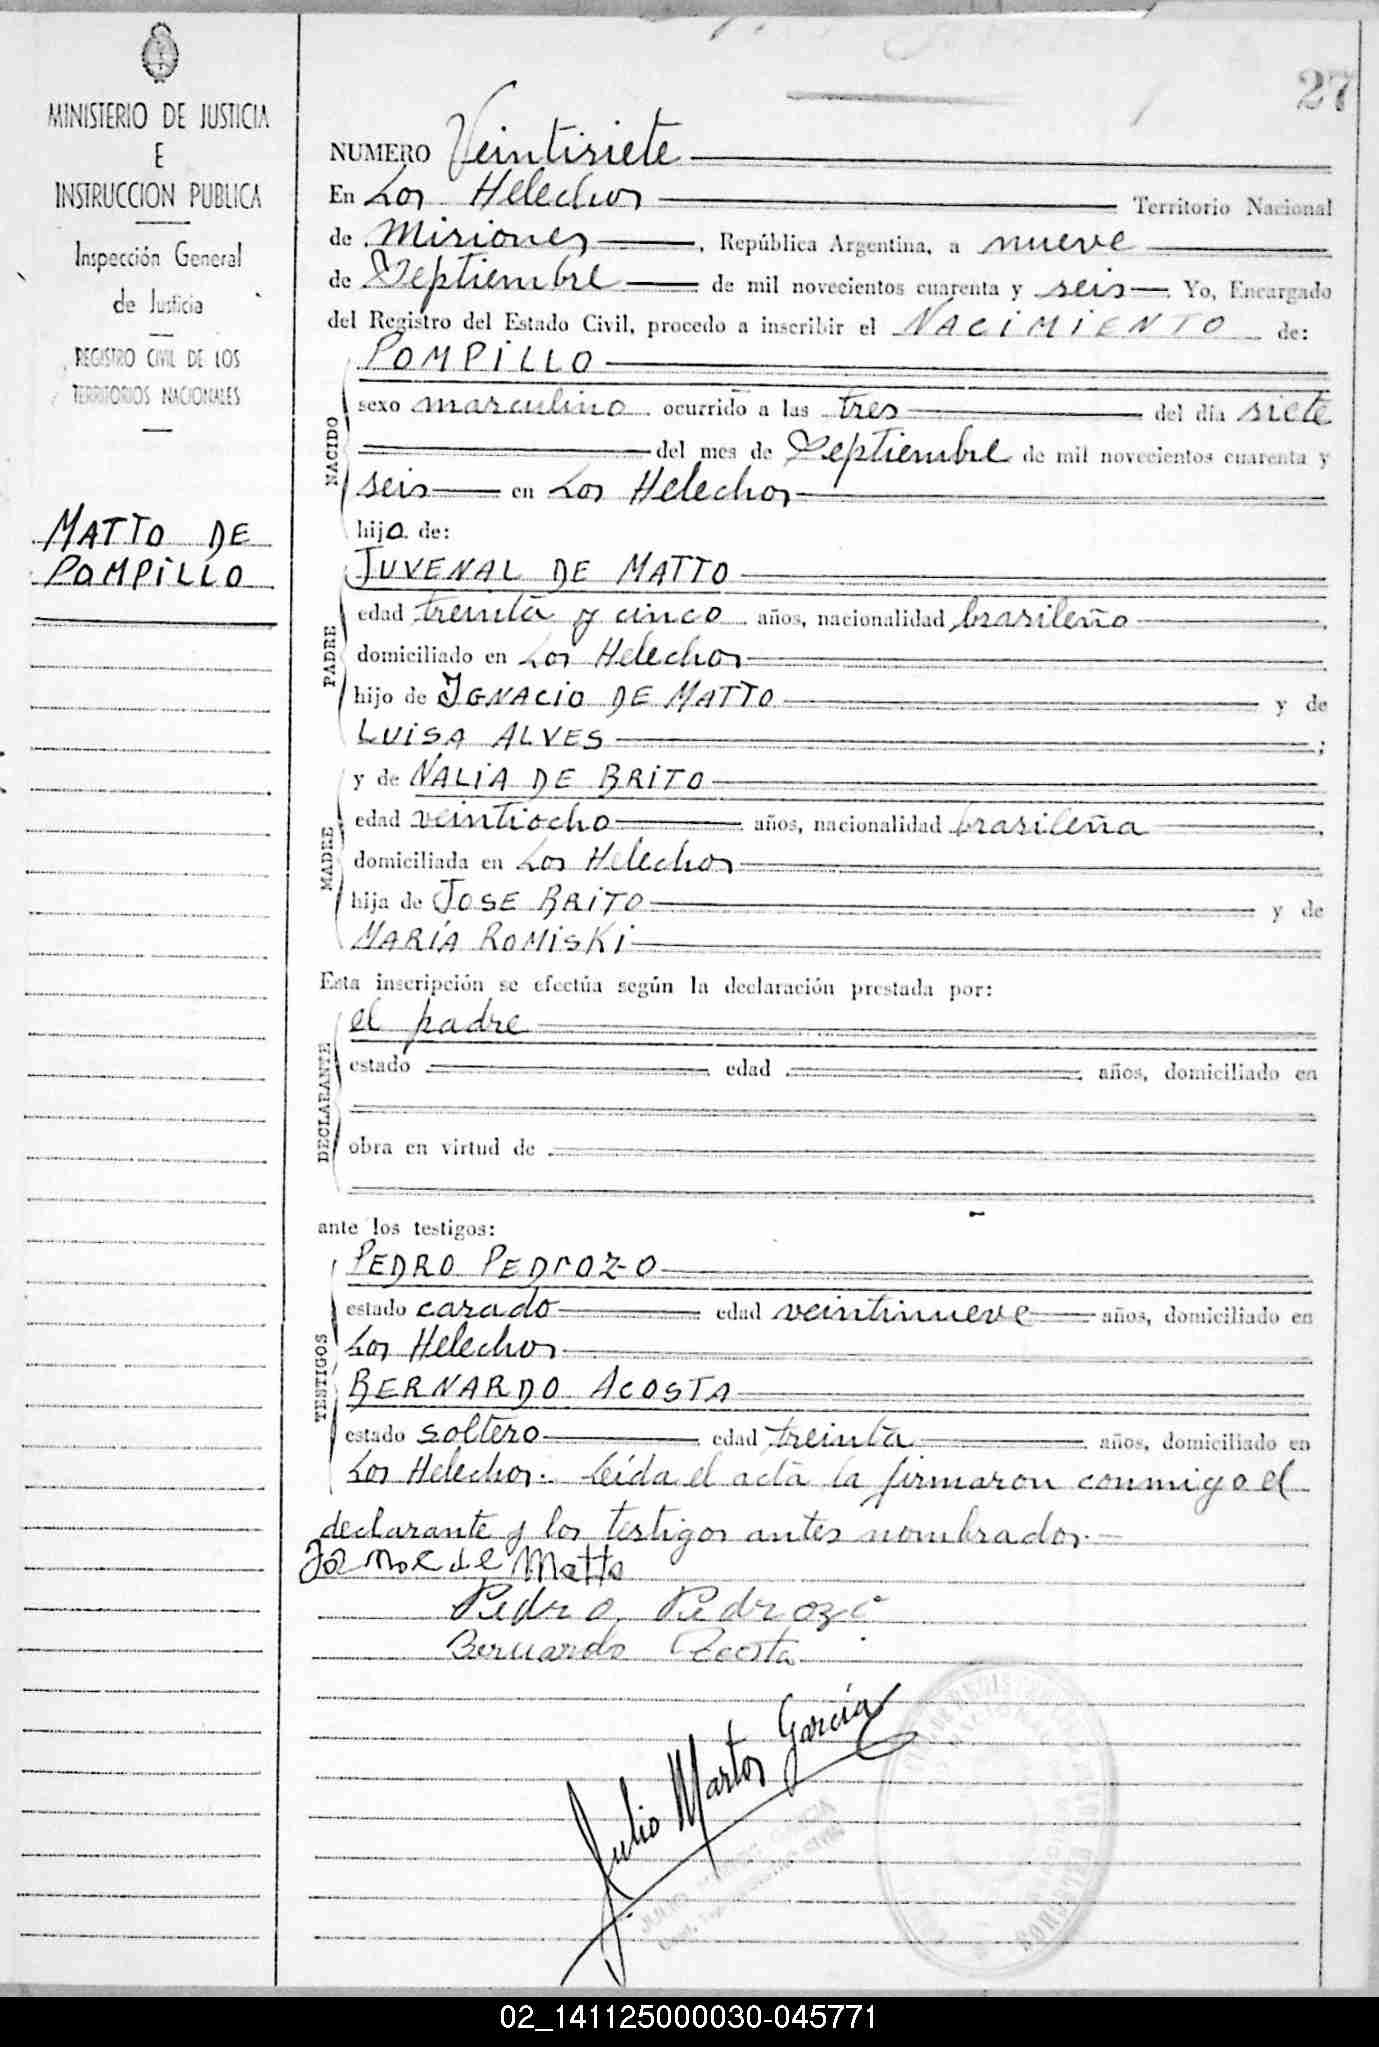 27
MINISTERIO DE JUSTICIA
E
INSTRUCCION PUBLICA
Inspección General
de Justicia
REGISTRO CIVIL DE LOS
TERRITORIOS NACIONALES
MATTO DE
POMPILLO
NUMERO Veintisiete
En Los Helechos Territorio Nacional
de Misiones, República Argentina, a nueve
de Septiembre de mil novecientos cuarenta y seis. Yo, Encargado
del Registro del Estado Civil, procedo a inscribir el NACIMIENTO de:
NACIDO
POMPILLO
sexo masculino ocurrido a las tres del día siete
del mes de Septiembre de mil novecientos cuarenta y
seis en Los Helechos
hijo de:
PADRE
JUVENAL DE MATTO
edad treinta y cinco años, nacionalidad brasileño
domiciliado en Los Helechos
hijo de IGNACIO DE MATTO y de
LUISA ALVES;
MADRE
y de NALIA DE BRITO
edad veintiocho años, nacionalidad brasileña
domiciliada en Los Helechos
hija de JOSE BRITO y de
MARÍA ROMISKI
Esta inscripción se efectúa según la declaración prestada por:
DECLARANTE
el padre
estado edad años, domiciliado en
obra en virtud de
ante los testigos:
TESTIGOS
PEDRO PEDROZO
estado casado edad veintinueve años, domiciliado en
Los Helechos
BERNARDO ACOSTA
estado soltero edad treinta años, domiciliado en
Los Helechos. Leída el acta la firmaron conmigo el
declarante y los testigos antes nombrados.
de Matto
Pedro Pedrozo
Bernardo Acosta
Julio Martos García
JULIO GARCIA
02_141125000030-045771